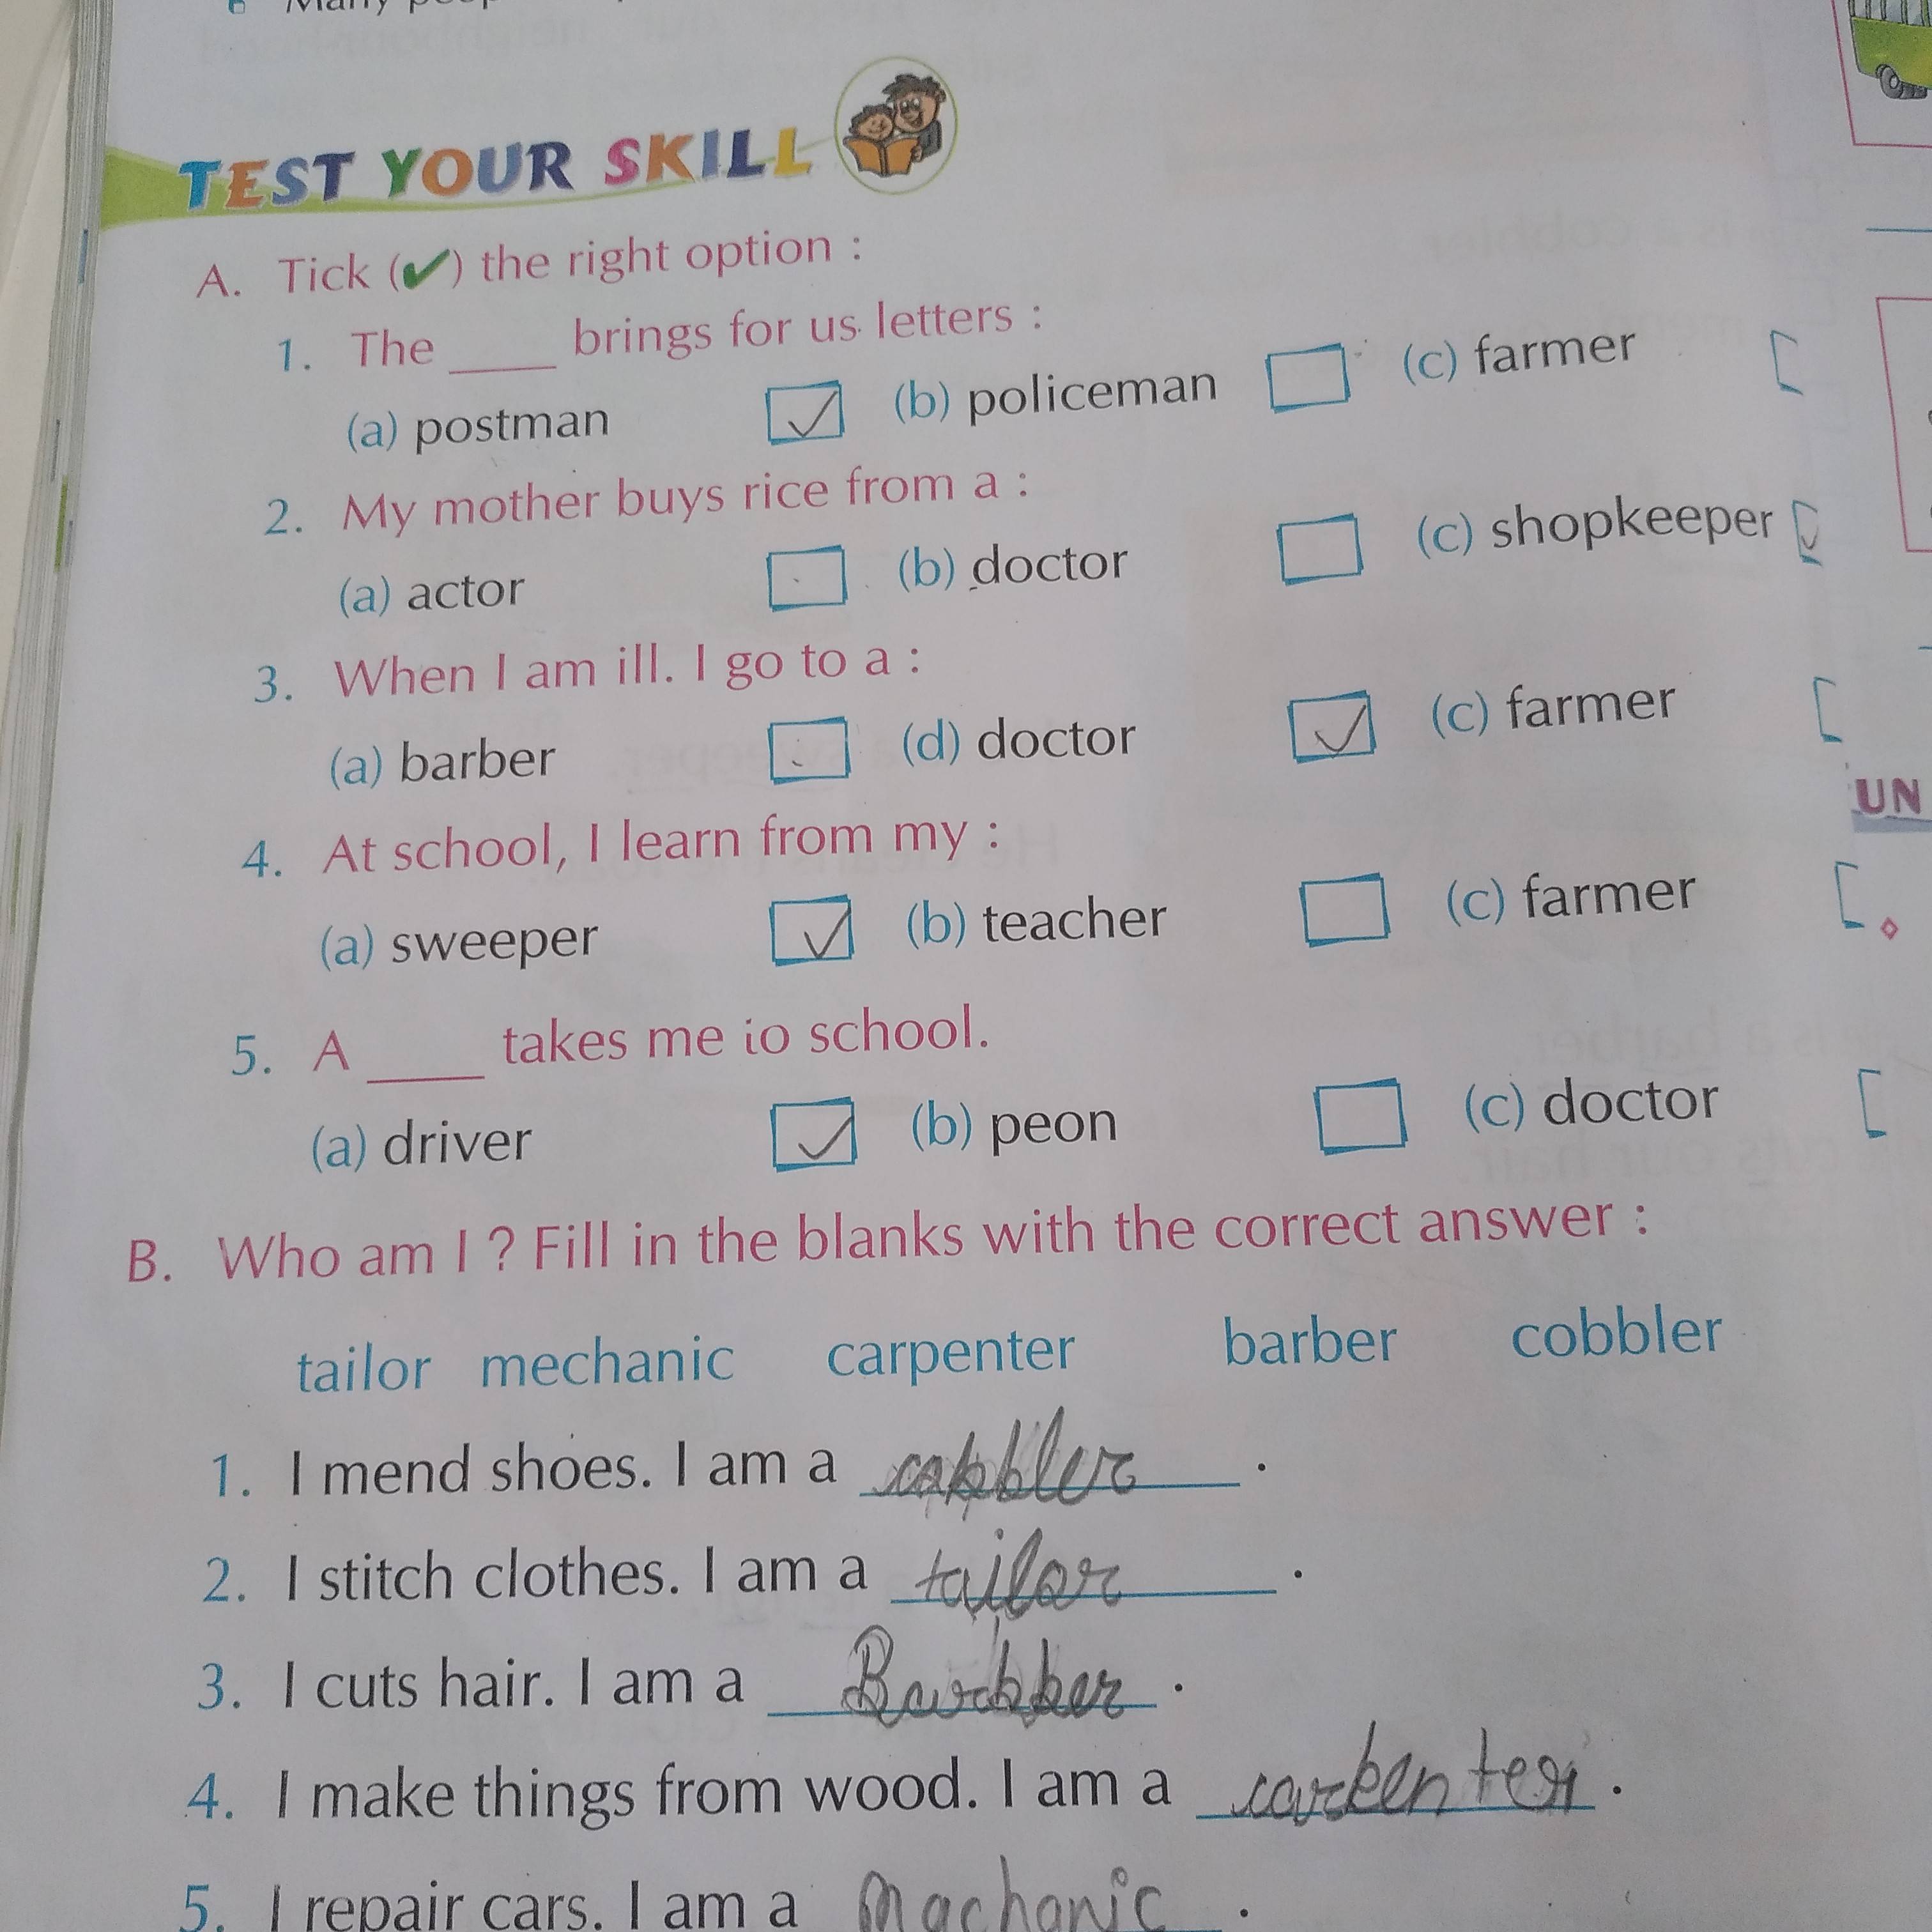 Many
TEST YOUR SKILL
A. Tick (✔) the right option :
1. The ____ brings for us letters :
(a) postman ✓ (b) policeman (c) farmer
2. My mother buys rice from a :
(a) actor (b) doctor (c) shopkeeper ✓
3. When I am ill. I go to a :
(a) barber (d) doctor ✓ (c) farmer
UN
4. At school, I learn from my :
(a) sweeper ✓ (b) teacher (c) farmer
5. A ____ takes me to school.
(a) driver ✓ (b) peon (c) doctor
B. Who am I ? Fill in the blanks with the correct answer :
tailor mechanic carpenter barber cobbler
1. I mend shoes. I am a cobbler .
2. I stitch clothes. I am a tailor .
3. I cuts hair. I am a Barbber .
4. I make things from wood. I am a carbenter .
5. I repair cars. I am a Machanic .